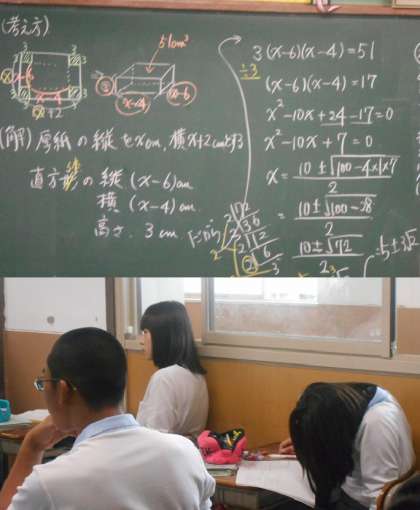 (考え方)
3 3
3 3
x
x-4
x+2
51cm³
③
x-4
x-6
(解) 厚紙の縦をxcm, 横x+2cmとする
直方形の縦 (x-6)cm
横 (x-4)cm
高さ 3cm
だから
2)72
2)36
2)18
3(x-6)(x-4)=51
÷3
(x-6)(x-4)=17
x²-10x+24-17=0
x²-10x+7=0
x=10±√100-4×1×7
2
=10±√100-28
2
10±√72
2
5±3√2